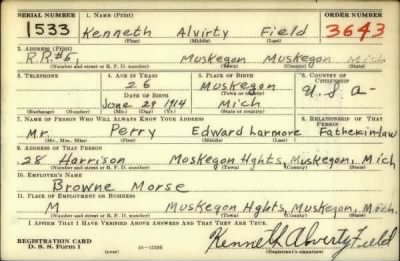 SERIAL NUMBER 1. NAME (Print) ORDER NUMBER
1533 Kenneth Alvirty Field 3643
(First) (Middle) (Last)
2. ADDRESS (Print)
R.R.#6, Muskegon Muskegon Mich
(Number and street or R. F. D. number) (Town) (County) (State)
3. TELEPHONE 4. AGE IN YEARS 5. PLACE OF BIRTH 6. COUNTRY OF CITIZENSHIP
26 Muskegon U.S.A-
DATE OF BIRTH (Town or county)
June 29 1914 Mich
(Exchange) (Number) (Mo.) (Day) (Yr.) (State or country)
7. NAME OF PERSON WHO WILL ALWAYS KNOW YOUR ADDRESS 8. RELATIONSHIP OF THAT PERSON
Mr. Perry Edward Larmore Fatherinlaw
(Mr., Mrs., Miss) (First) (Middle) (Last)
9. ADDRESS OF THAT PERSON
28 Harrison Moskegon Hghts, Muskegon, Mich
(Number and street or R. F. D. number) (Town) (County) (State)
10. EMPLOYER'S NAME
Browne Morse
11. PLACE OF EMPLOYMENT OR BUSINESS
M Muskegon Hghts, Muskegon, Mich.
(Number and street or R. F. D. number) (Town) (County) (State)
I AFFIRM THAT I HAVE VERIFIED ABOVE ANSWERS AND THAT THEY ARE TRUE.
REGISTRATION CARD
D. S. S. Form 1 (over) Kenneth Alvirty Field
(Registrant's signature)